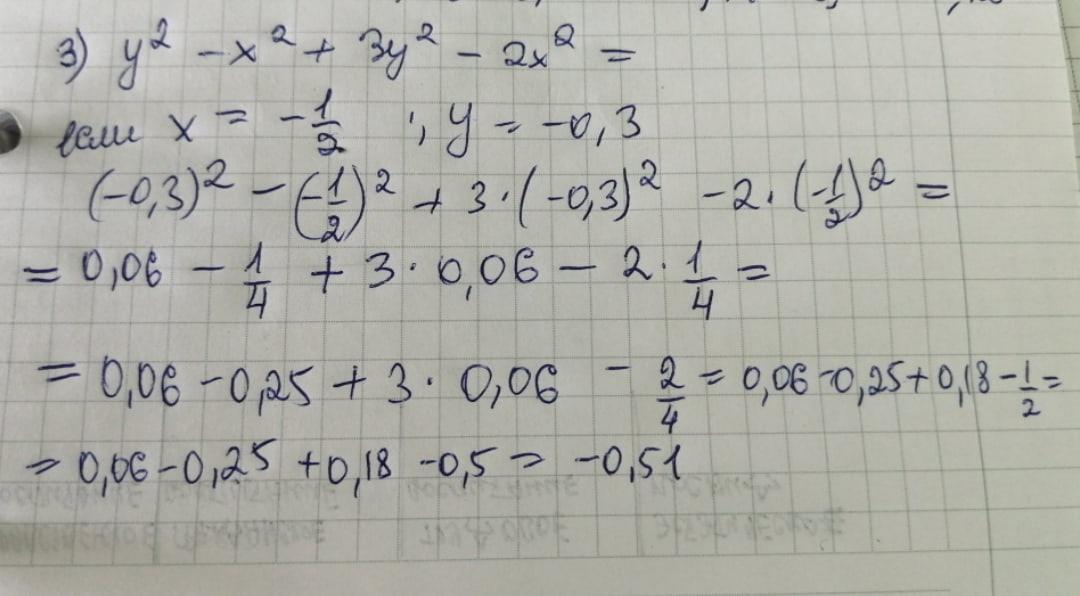 3) y² - x² + 3y² - 2x² =
если x = -1/2 ; y = -0,3
(-0,3)² - (-1/2)² + 3·(-0,3)² - 2·(-1/2)² =
= 0,06 - 1/4 + 3·0,06 - 2·1/4 =
= 0,06 - 0,25 + 3·0,06 - 2/4 = 0,06 - 0,25 + 0,18 - 1/2 =
= 0,06 - 0,25 + 0,18 - 0,5 = -0,51